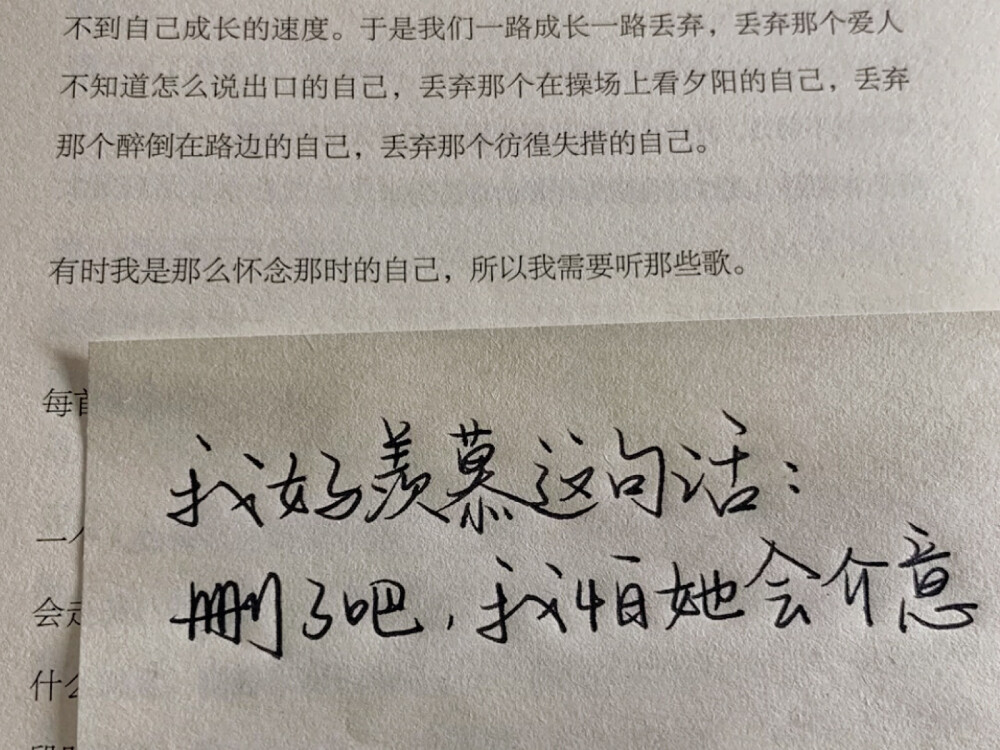 不到自己成长的速度。于是我们一路成长一路丢弃，丢弃那个爱人
不知道怎么说出口的自己，丢弃那个在操场上看夕阳的自己，丢弃
那个醉倒在路边的自己，丢弃那个彷徨失措的自己。
有时我是那么怀念那时的自己，所以我需要听那些歌。
每首
我好羡慕这句话：
删了吧，我怕她会介意
一个
会走
什么